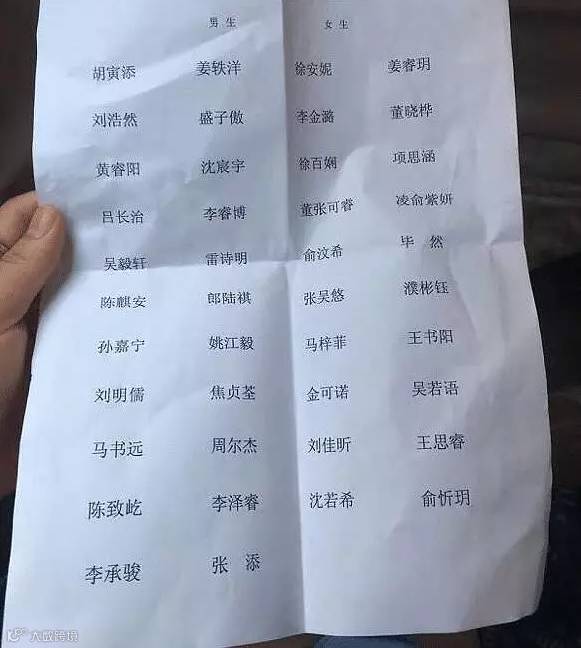 男生 女生
胡寅添 姜轶洋 徐安妮 姜睿玥
刘浩然 盛子傲 李金潞 董晓桦
黄睿阳 沈宸宇 徐百娴 项思涵
吕长治 李睿博 董张可睿 凌俞紫妍
吴毅轩 雷诗明 俞汶希 毕然
陈麒安 郎陆祺 张吴悠 濮彬钰
孙嘉宁 姚江毅 马梓菲 王书阳
刘明儒 焦贞荃 金可诺 吴若语
马书远 周尔杰 刘佳昕 王思睿
陈致屹 李泽睿 沈若希 俞忻玥
李承骏 张添
大数跨境